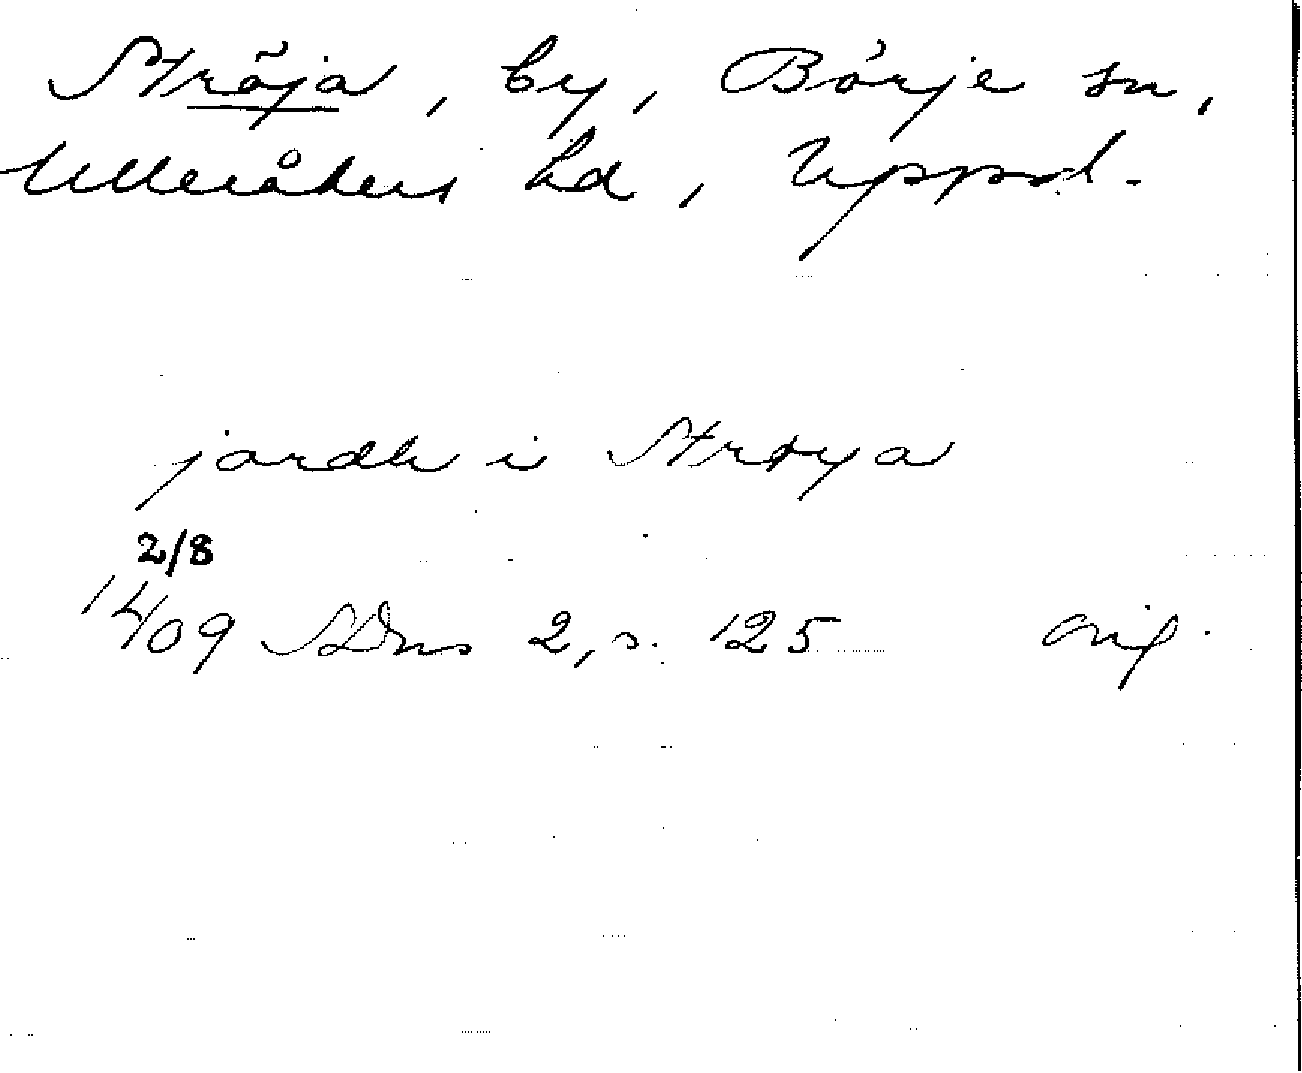 Ströja, by, Börje sn,
Ulleråkers hd, Uppsl.
jordh i Strøya
2/8
1409 SDns 2, s. 125 orig.